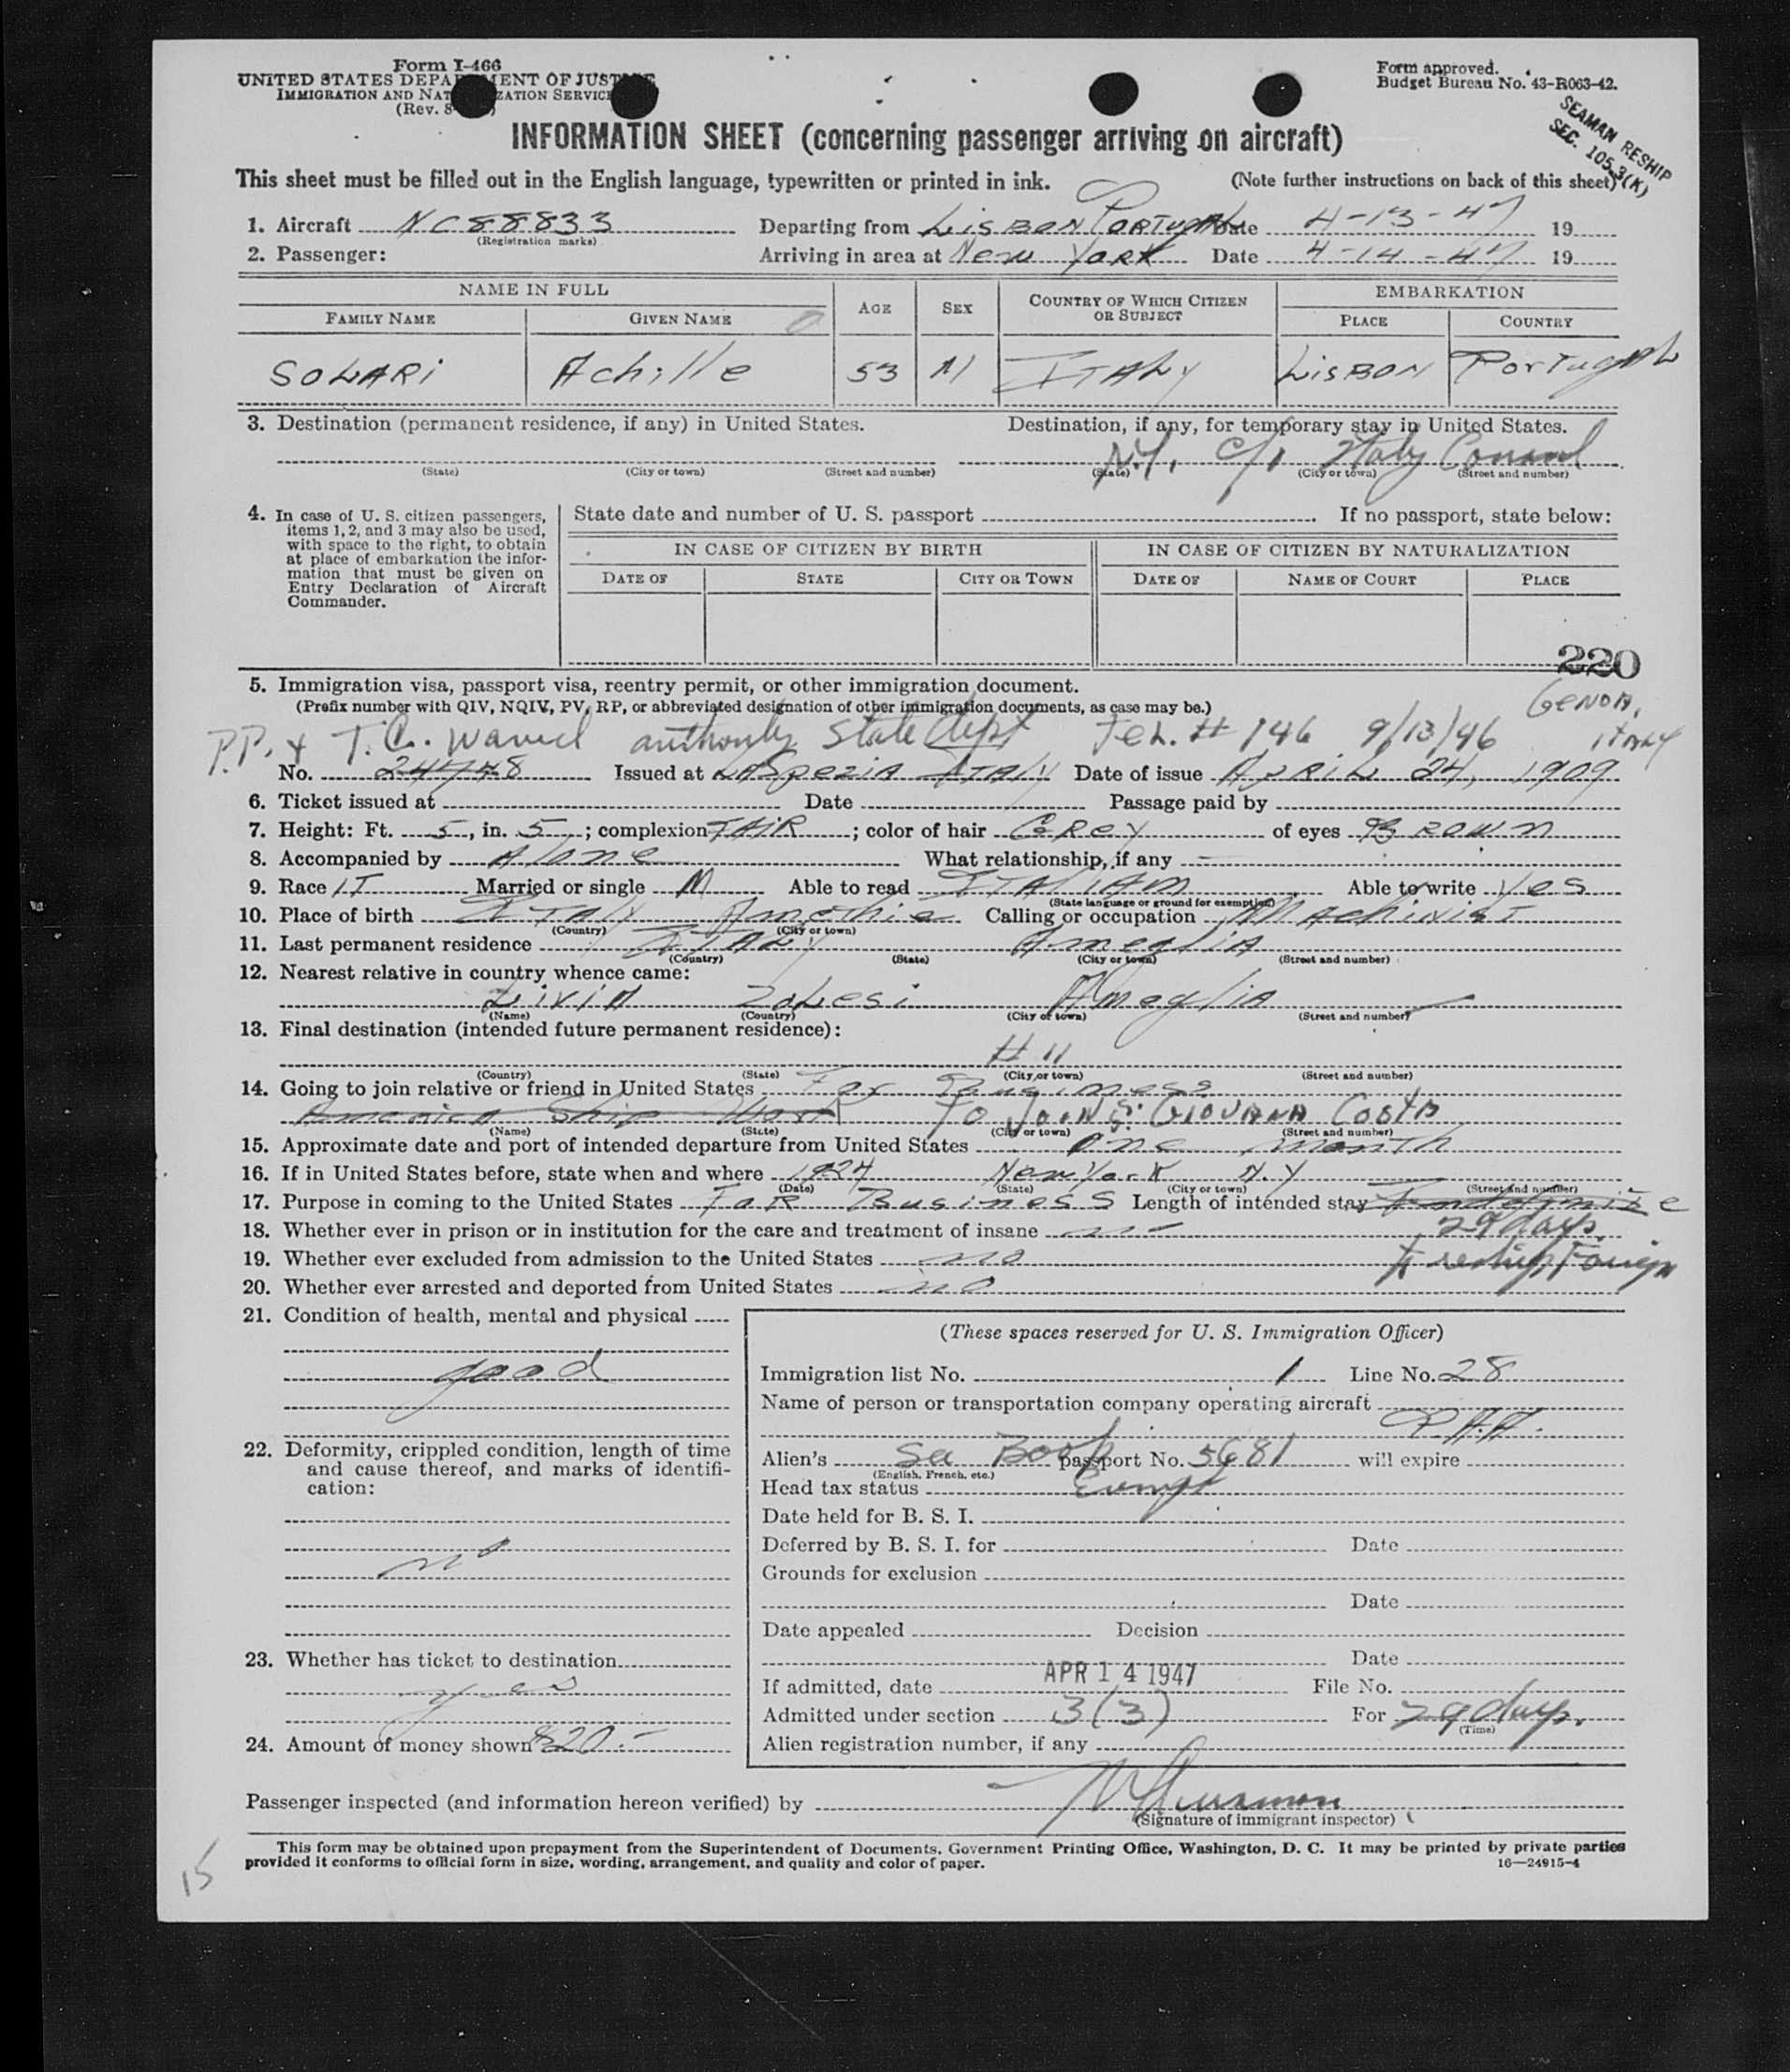 Form I-466
UNITED STATES DEPARTMENT OF JUSTICE
IMMIGRATION AND NATURALIZATION SERVICE
(Rev. 8
Form approved.
Budget Bureau No. 43-R063-42.
SEAMAN RESHIP
SEC. 105.3(K)
INFORMATION SHEET (concerning passenger arriving on aircraft)
This sheet must be filled out in the English language, typewritten or printed in ink. (Note further instructions on back of this sheet)
1. Aircraft NC88833 Departing from LISBON PORTUGAL Date 4-13-47 19
(Registration marks)
2. Passenger: Arriving in area at New York Date 4-14-47 19
NAME IN FULL AGE SEX COUNTRY OF WHICH CITIZEN OR SUBJECT EMBARKATION
FAMILY NAME GIVEN NAME PLACE COUNTRY
SOLARI Achille 53 M ITALY LISBON PORTUGAL
3. Destination (permanent residence, if any) in United States. Destination, if any, for temporary stay in United States.
N.Y. c/o Italy Consul
(State) (City or town) (Street and number) (State) (City or town) (Street and number)
4. In case of U. S. citizen passengers, items 1, 2, and 3 may also be used, with space to the right, to obtain at place of embarkation the information that must be given on Entry Declaration of Aircraft Commander.
State date and number of U. S. passport If no passport, state below:
IN CASE OF CITIZEN BY BIRTH IN CASE OF CITIZEN BY NATURALIZATION
DATE OF STATE CITY OR TOWN DATE OF NAME OF COURT PLACE
220
5. Immigration visa, passport visa, reentry permit, or other immigration document.
(Prefix number with QIV, NQIV, PV, RP, or abbreviated designation of other immigration documents, as case may be.)
GENOA, ITALY
P.P. & T.C. waived authority State Dept Tel. # 146 9/13/46
No. 24748 Issued at LASpezia ITALY Date of issue APRIL 24, 1909
6. Ticket issued at Date Passage paid by
7. Height: Ft. 5, in. 5; complexion FAIR; color of hair GREY of eyes BROWN
8. Accompanied by Alone What relationship, if any -
9. Race IT Married or single M Able to read ITALIAN Able to write Yes
(State language or ground for exemption)
10. Place of birth ITALY Calling or occupation MACHINIST
(Country) (City or town)
11. Last permanent residence ITALY Ameglia
(Country) (State) (City or town) (Street and number)
12. Nearest relative in country whence came:
Livia Zolesi Ameglia
(Name) (Country) (City or town) (Street and number)
13. Final destination (intended future permanent residence):
# 11
(Country) (State) (City or town) (Street and number)
14. Going to join relative or friend in United States For Business
America Ship To Join S.S. GIOVANNA COSTA
(Name) (State) (City or town) (Street and number)
15. Approximate date and port of intended departure from United States one month
16. If in United States before, state when and where 1924 New York N.Y
(Date) (State) (City or town) (Street and number)
17. Purpose in coming to the United States FOR Business Length of intended stay
29 days
to reship Foreign
18. Whether ever in prison or in institution for the care and treatment of insane no
19. Whether ever excluded from admission to the United States no
20. Whether ever arrested and deported from United States no
21. Condition of health, mental and physical
good
22. Deformity, crippled condition, length of time and cause thereof, and marks of identification:
no
23. Whether has ticket to destination
yes
24. Amount of money shown $20.-
(These spaces reserved for U. S. Immigration Officer)
Immigration list No. 1 Line No. 28
Name of person or transportation company operating aircraft
P.A.A.
Alien's Sea Book passport No. 5681 will expire
(English, French, etc.)
Head tax status Exempt
Date held for B. S. I.
Deferred by B. S. I. for Date
Grounds for exclusion
Date
Date appealed Decision
Date
If admitted, date APR 14 1947 File No.
Admitted under section 3(3) For 29 days.
(Time)
Alien registration number, if any
Passenger inspected (and information hereon verified) by
(Signature of immigrant inspector)
This form may be obtained upon prepayment from the Superintendent of Documents, Government Printing Office, Washington, D. C. It may be printed by private parties
provided it conforms to official form in size, wording, arrangement, and quality and color of paper. 16—24915-4
15